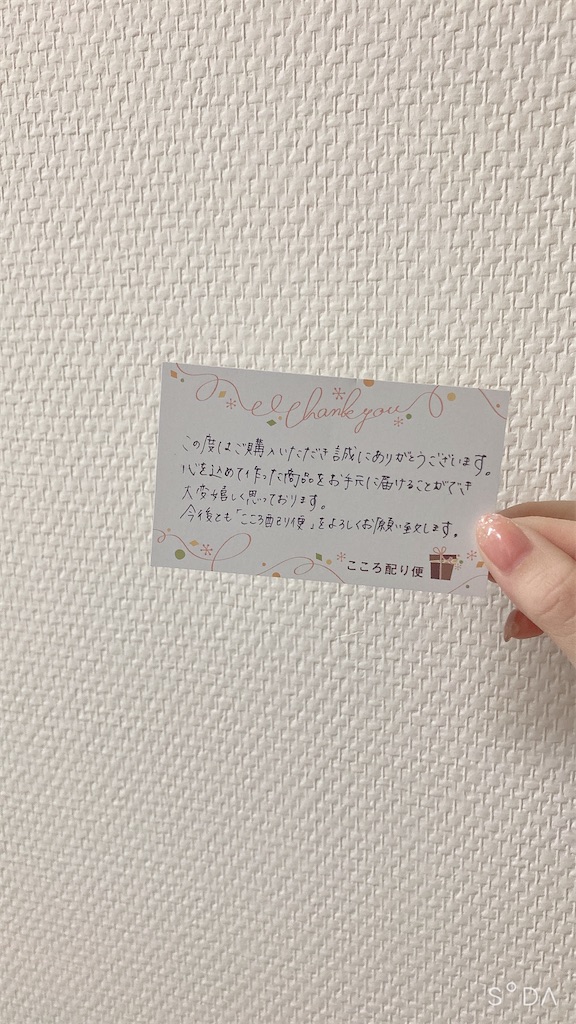 Thank you
この度はご購入いただき誠にありがとうございます。
心を込めて作った商品をお手元に届けることができ
大変嬉しく思っております。
今後とも「こころ配り便」をよろしくお願い致します。
こころ配り便
SODA